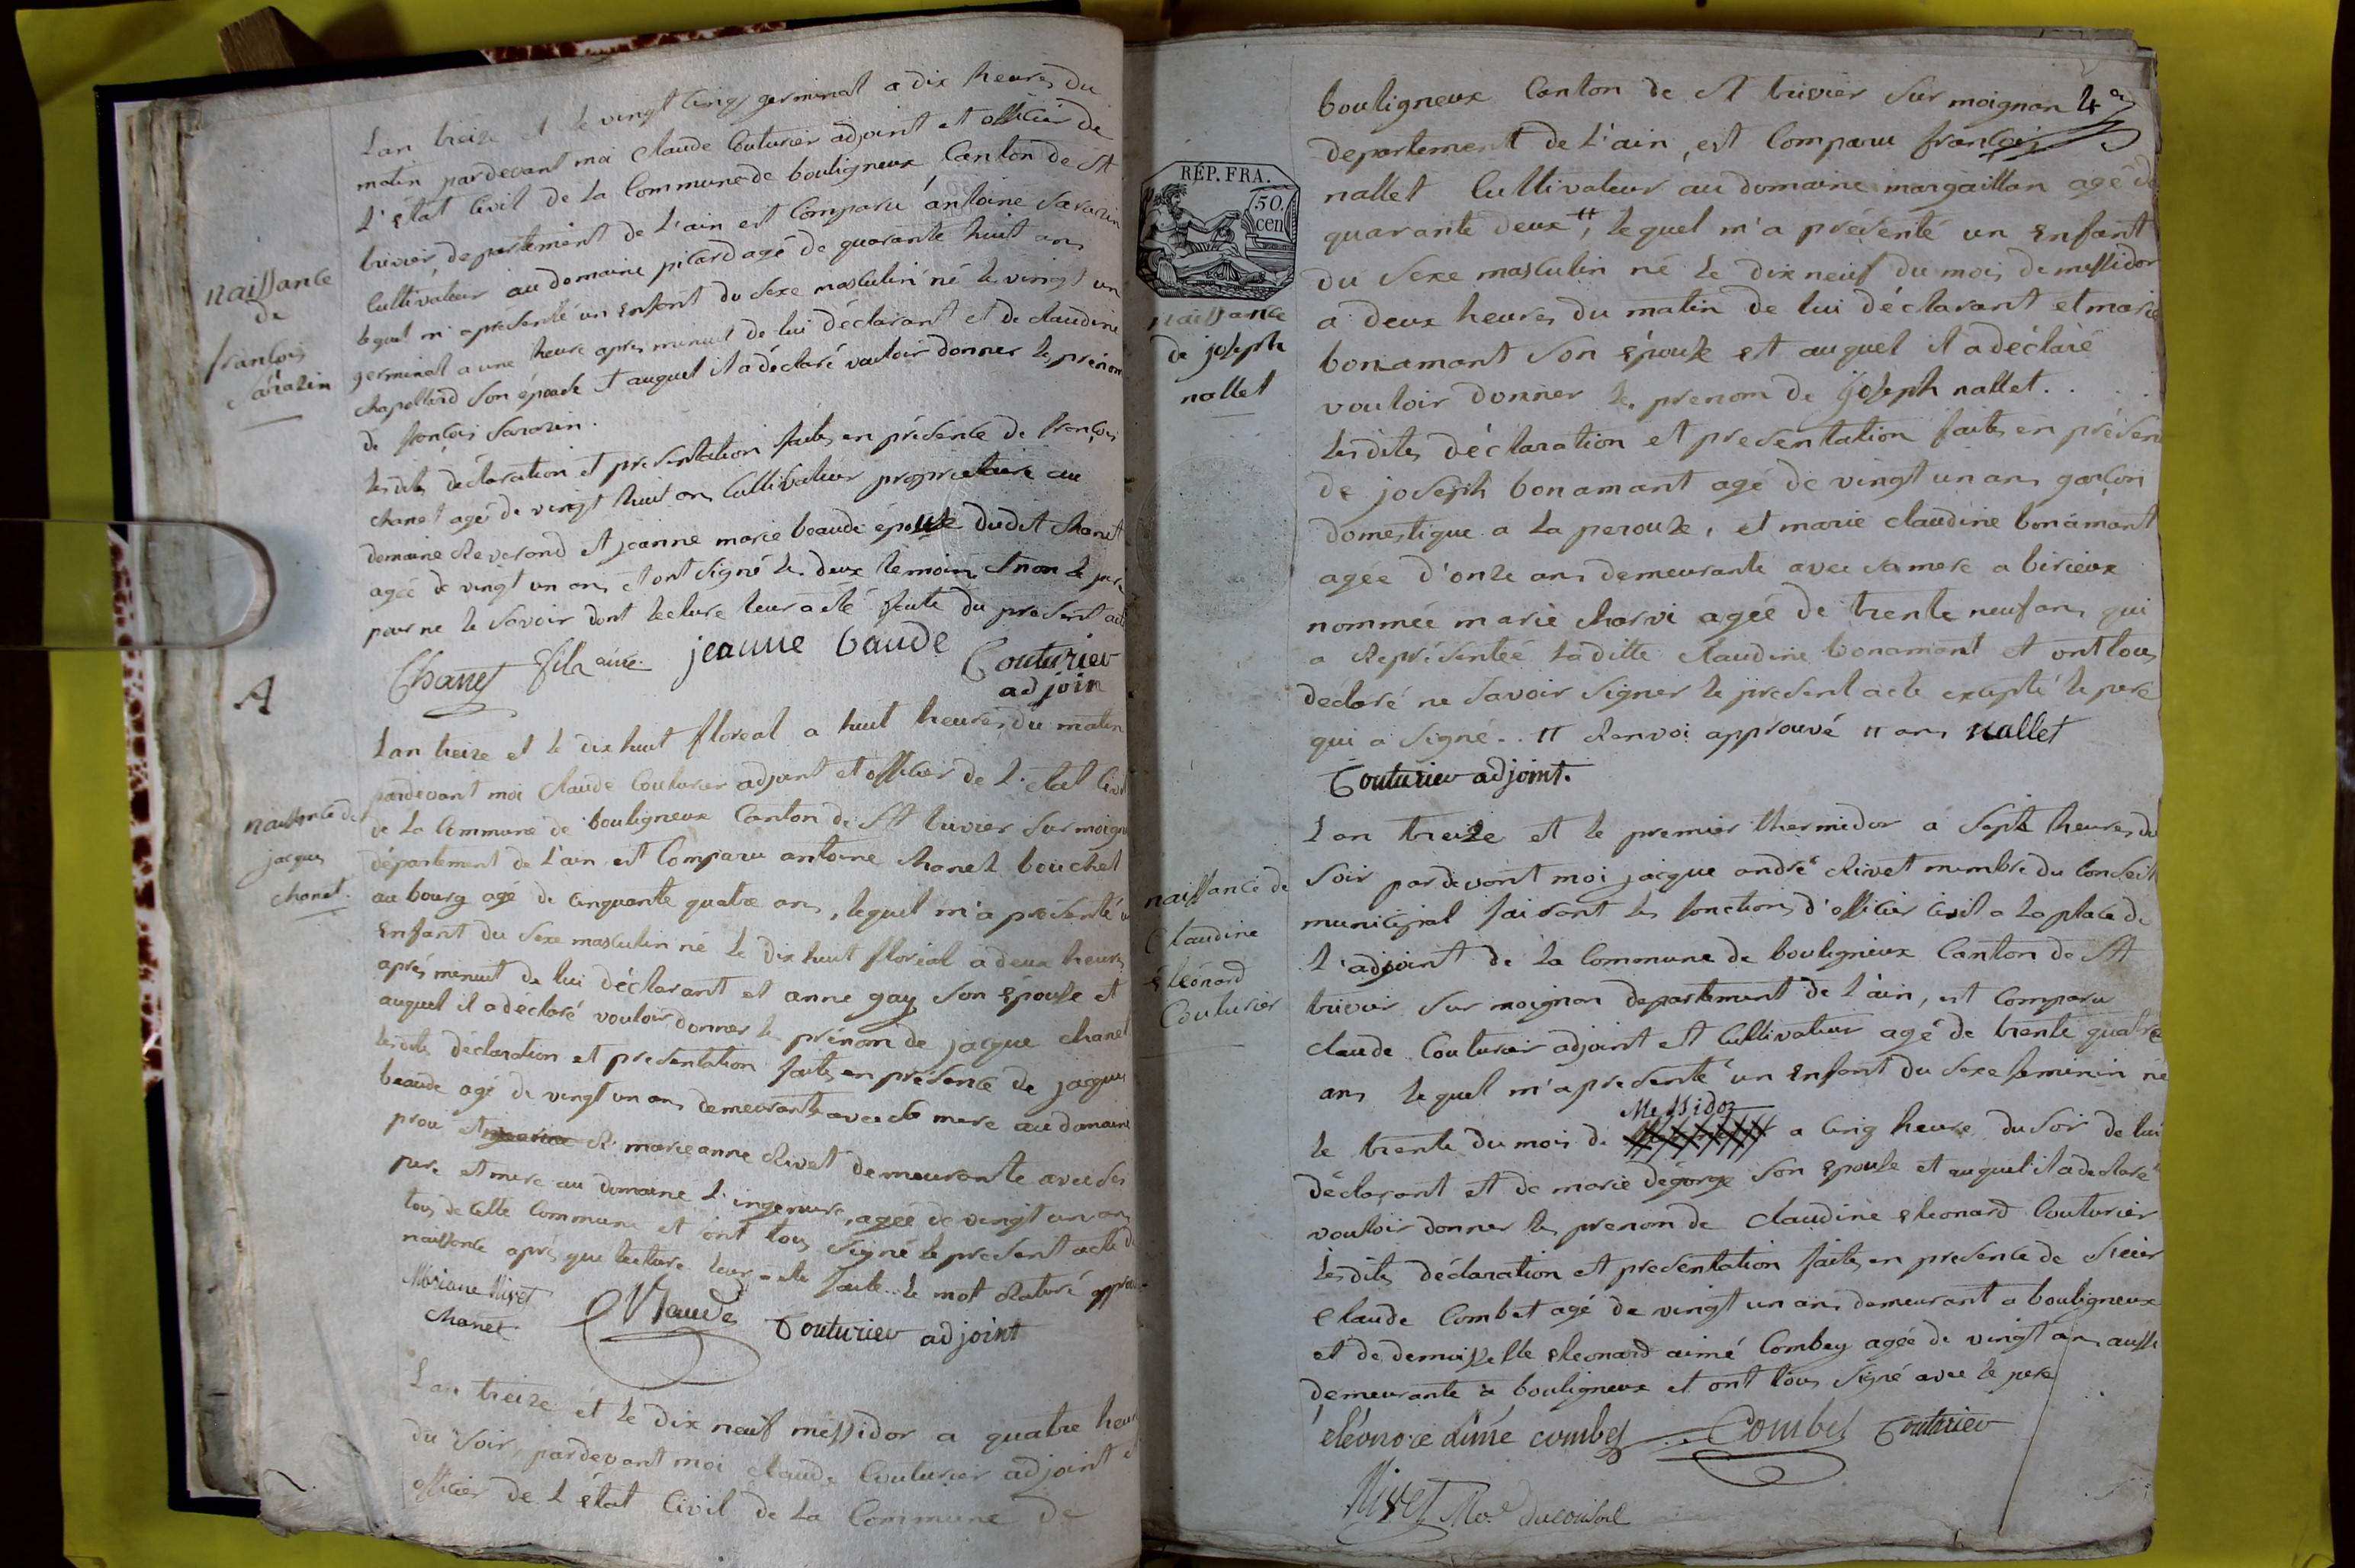 Lan treize et le vingt cinq germinal a dix heures du
matin pardevant moi Claude Couturier adjoint et officier de
L'Etat Civil de la Commune de bouligneux Canton de St
trivier, departement de L'ain est Comparu antoine Sarazin
Cultivateur au domaine picard agé de quarante huit ans
lequel m'a présenté un Enfant du Sexe masculin né le vingt un
germinal a une heure apres minuit de lui déclarant et de claudine
chapolland Son épouse et auquel il a déclaré vouloir donner le prénom
de françois Sarazin.
Lesdites déclaration et presentation faites en présence de françois
chanel agé de vingt huit ans Cultivateur proprietaire au
domaine Reverond et jeanne marie beaude épouse dudit Chanel
agée de vingt un ans et ont Signé les deux temoins et non le pere
pour ne le Savoir dont lecture leur a été faite du present acte
Chanel fils ainé jeanne baude Couturier
adjoin
naissance
de
françois
Sarazin
A
Lan treize et le dix huit floreal a huit heures du matin
pardevant moi Claude Couturier adjoint et officier de L'etat Civil
de la Commune de bouligneux Canton de St trivier Sur moign
département de L'ain est Comparu antoine chanel bouchet
au bourg agé de Cinquante quatre ans, lequel m'a présenté u
Enfant du Sexe masculin né le dix huit floréal a deux heures
après minuit de lui déclarant et anne gay Son épouse et
auquel il a déclaré vouloir donner le prénom de jacque chanel
lesdites déclaration et presentation faites en présence de jacque
beaude agé de vingt un ans demeurant avec Sa mere au domaine
prou et R. marie anne Rivet demeurante avec Ses
pere et mere au domaine L'ingenure, agée de vingt un ans
tous de Cette Commune et ont tous Signé le present acte de
naissance après que lecture leur a été faite. le mot Raturé approu
Mariane Rivet
Chanel Baude Couturier adjoint
naissance de
jacques
chanel.
Lan treize et le dix neuf messidor a quatre heures
du Soir, pardevant moi Claude Couturier adjoint et
officier de L'état Civil de la Commune de
bouligneux Canton de St trivier Sur moignan 4e
departement de L'ain, est Comparu françois
nallet Cultivateur au domaine margaillan agé de
quarante deux #, lequel m'a présenté un Enfant
du Sexe masculin né le dix neuf du mois de messidor
a deux heures du matin de lui déclarant et marie
bonamant Son épouse et auquel il a déclaré
vouloir donner le prenom de joseph nallet.
Lesdites déclaration et presentation faites en présen
de joseph bonamant agé de vingt un ans garçon
domestique a la perouze, et marie claudine bonamant
agée d'onze ans demeurante avec Sa mere a birieux
nommée marie charvi agée de trente neuf ans, qui
a Représentée laditte claudine bonamant et ont tous
declaré ne Savoir Signer le present acte excepté le pere
qui a Signé.. # Renvoi approuvé # ans nallet
Couturier adjoint.
RÉP. FRA.
50.
cen
naissance
de joseph
nallet
Lan treize et le premier thermidor a Sept heures du
Soir pardevant moi jacque andré Rivet membre du Conseil
municipal faisant les fonctions d'officier Civil a la place de
L'adjoint de la Commune de bouligneux Canton de St
trivier Sur moignan departement de L'ain, est Comparu
claude Couturier adjoint et Cultivateur agé de trente quatre
ans lequel m'a presenté un Enfant du Sexe feminin né
Messidor
le trente du mois de a cinq heure du Soir de lui
déclarant et de marie dégorge Son Epouse et auquel il a declaré
vouloir donner le prenom de Claudine Eleonard Couturier
Lesdites déclaration et presentation faites en presence de Sieur
Claude Combet agé de vingt un ans demeurant a bouligneux
et de demoiselle Eleonard aimé Combey agée de vingt ans aussi
demeurante à bouligneux et ont tous Signé avec le pere
éléonore aimé combet Combet Couturier
Rivet Mre du conseil
naissance de
Claudine
Eléonard
Couturier